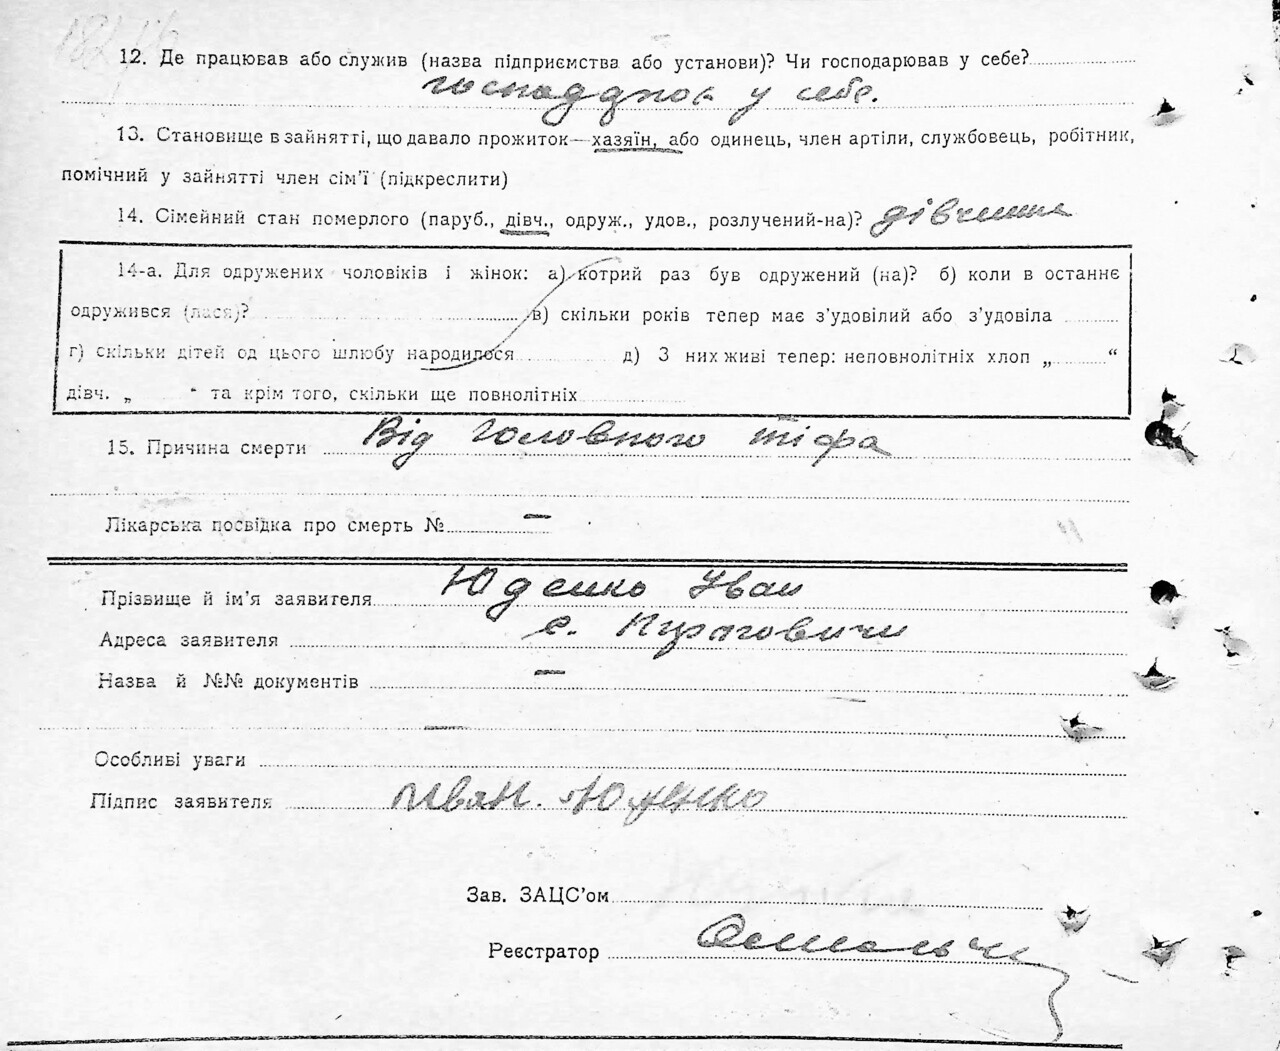 12. Де працював або служив (назва підприємства або установи)? Чи господарював у себе?
у себе.
13. Становище в зайнятті, що давало прожиток—хазяїн, або одинець, член артіли, службовець, робітник,
помічний у зайнятті член сім'ї (підкреслити)
14. Сімейний стан померлого (паруб., дівч., одруж., удов., розлучений-на)? дівчина
14-а. Для одружених чоловіків і жінок: а) котрий раз був одружений (на)? б) коли в останнє
одружився (лася)? в) скільки років тепер має з'удовілий або з'удовіла
г) скільки дітей од цього шлюбу народилося д) З них живі тепер: неповнолітніх хлоп „ “
дівч. „ “ та крім того, скільки ще повнолітніх
15. Причина смерти Від головного тіфа
Лікарська посвідка про смерть № —
Прізвище й ім'я заявителя Юденко Иван
Адреса заявителя с.
Назва й №№ документів —
—
Особливі уваги
Підпис заявителя Иван.
Зав. ЗАЦС'ом
Реєстратор